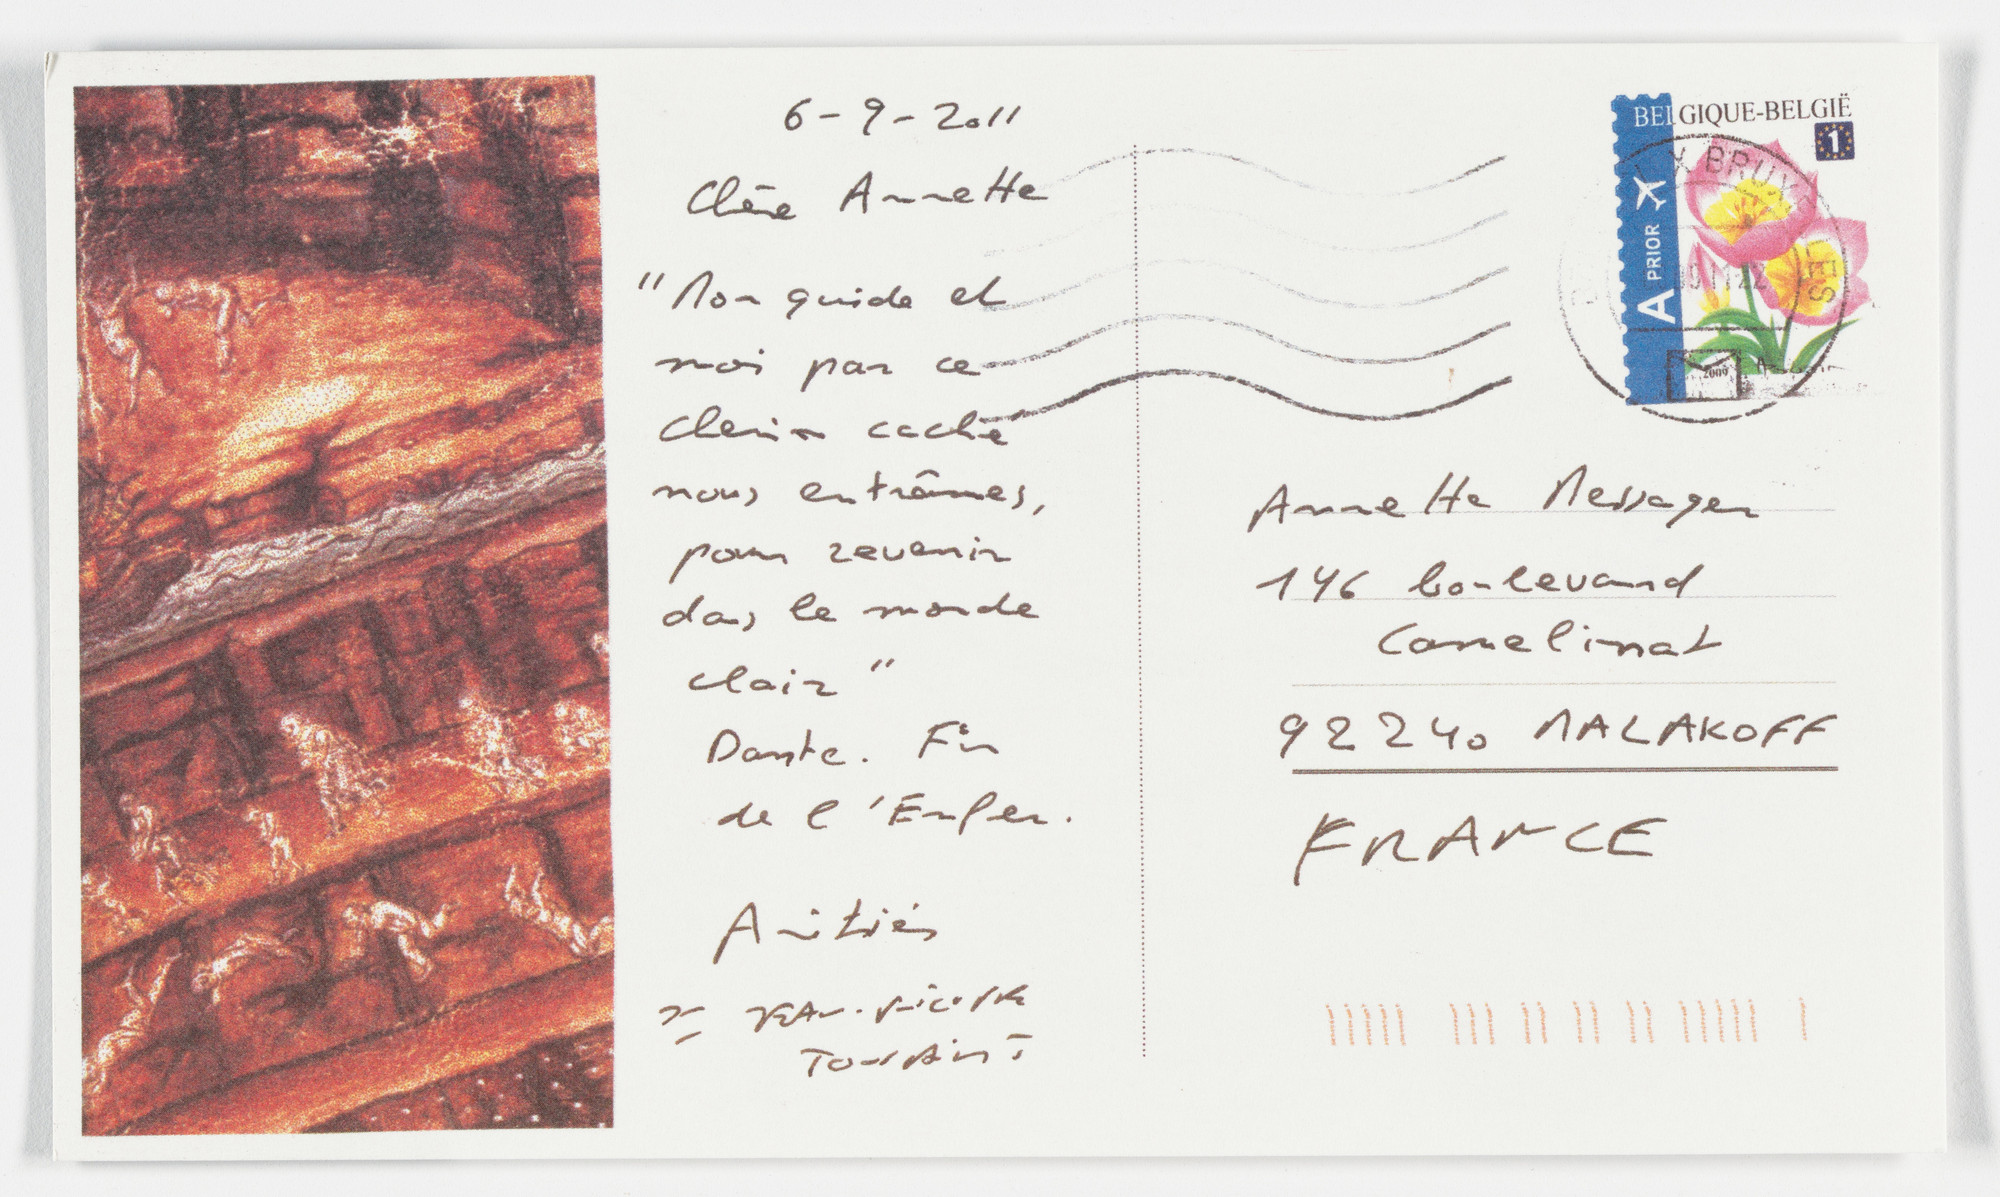 6-9-2011
Chère Annette
"Mon guide et
moi par ce
chemin caché
nous entrâmes,
pour revenir
dans le monde
clair"
Dante. Fin
de l'Enfer.
Amitiés
Toussaint
BELGIQUE-BELGIË
1
A PRIOR
2009
Annette Messager
146 boulevard
Camelinat
92240 MALAKOFF
FRANCE